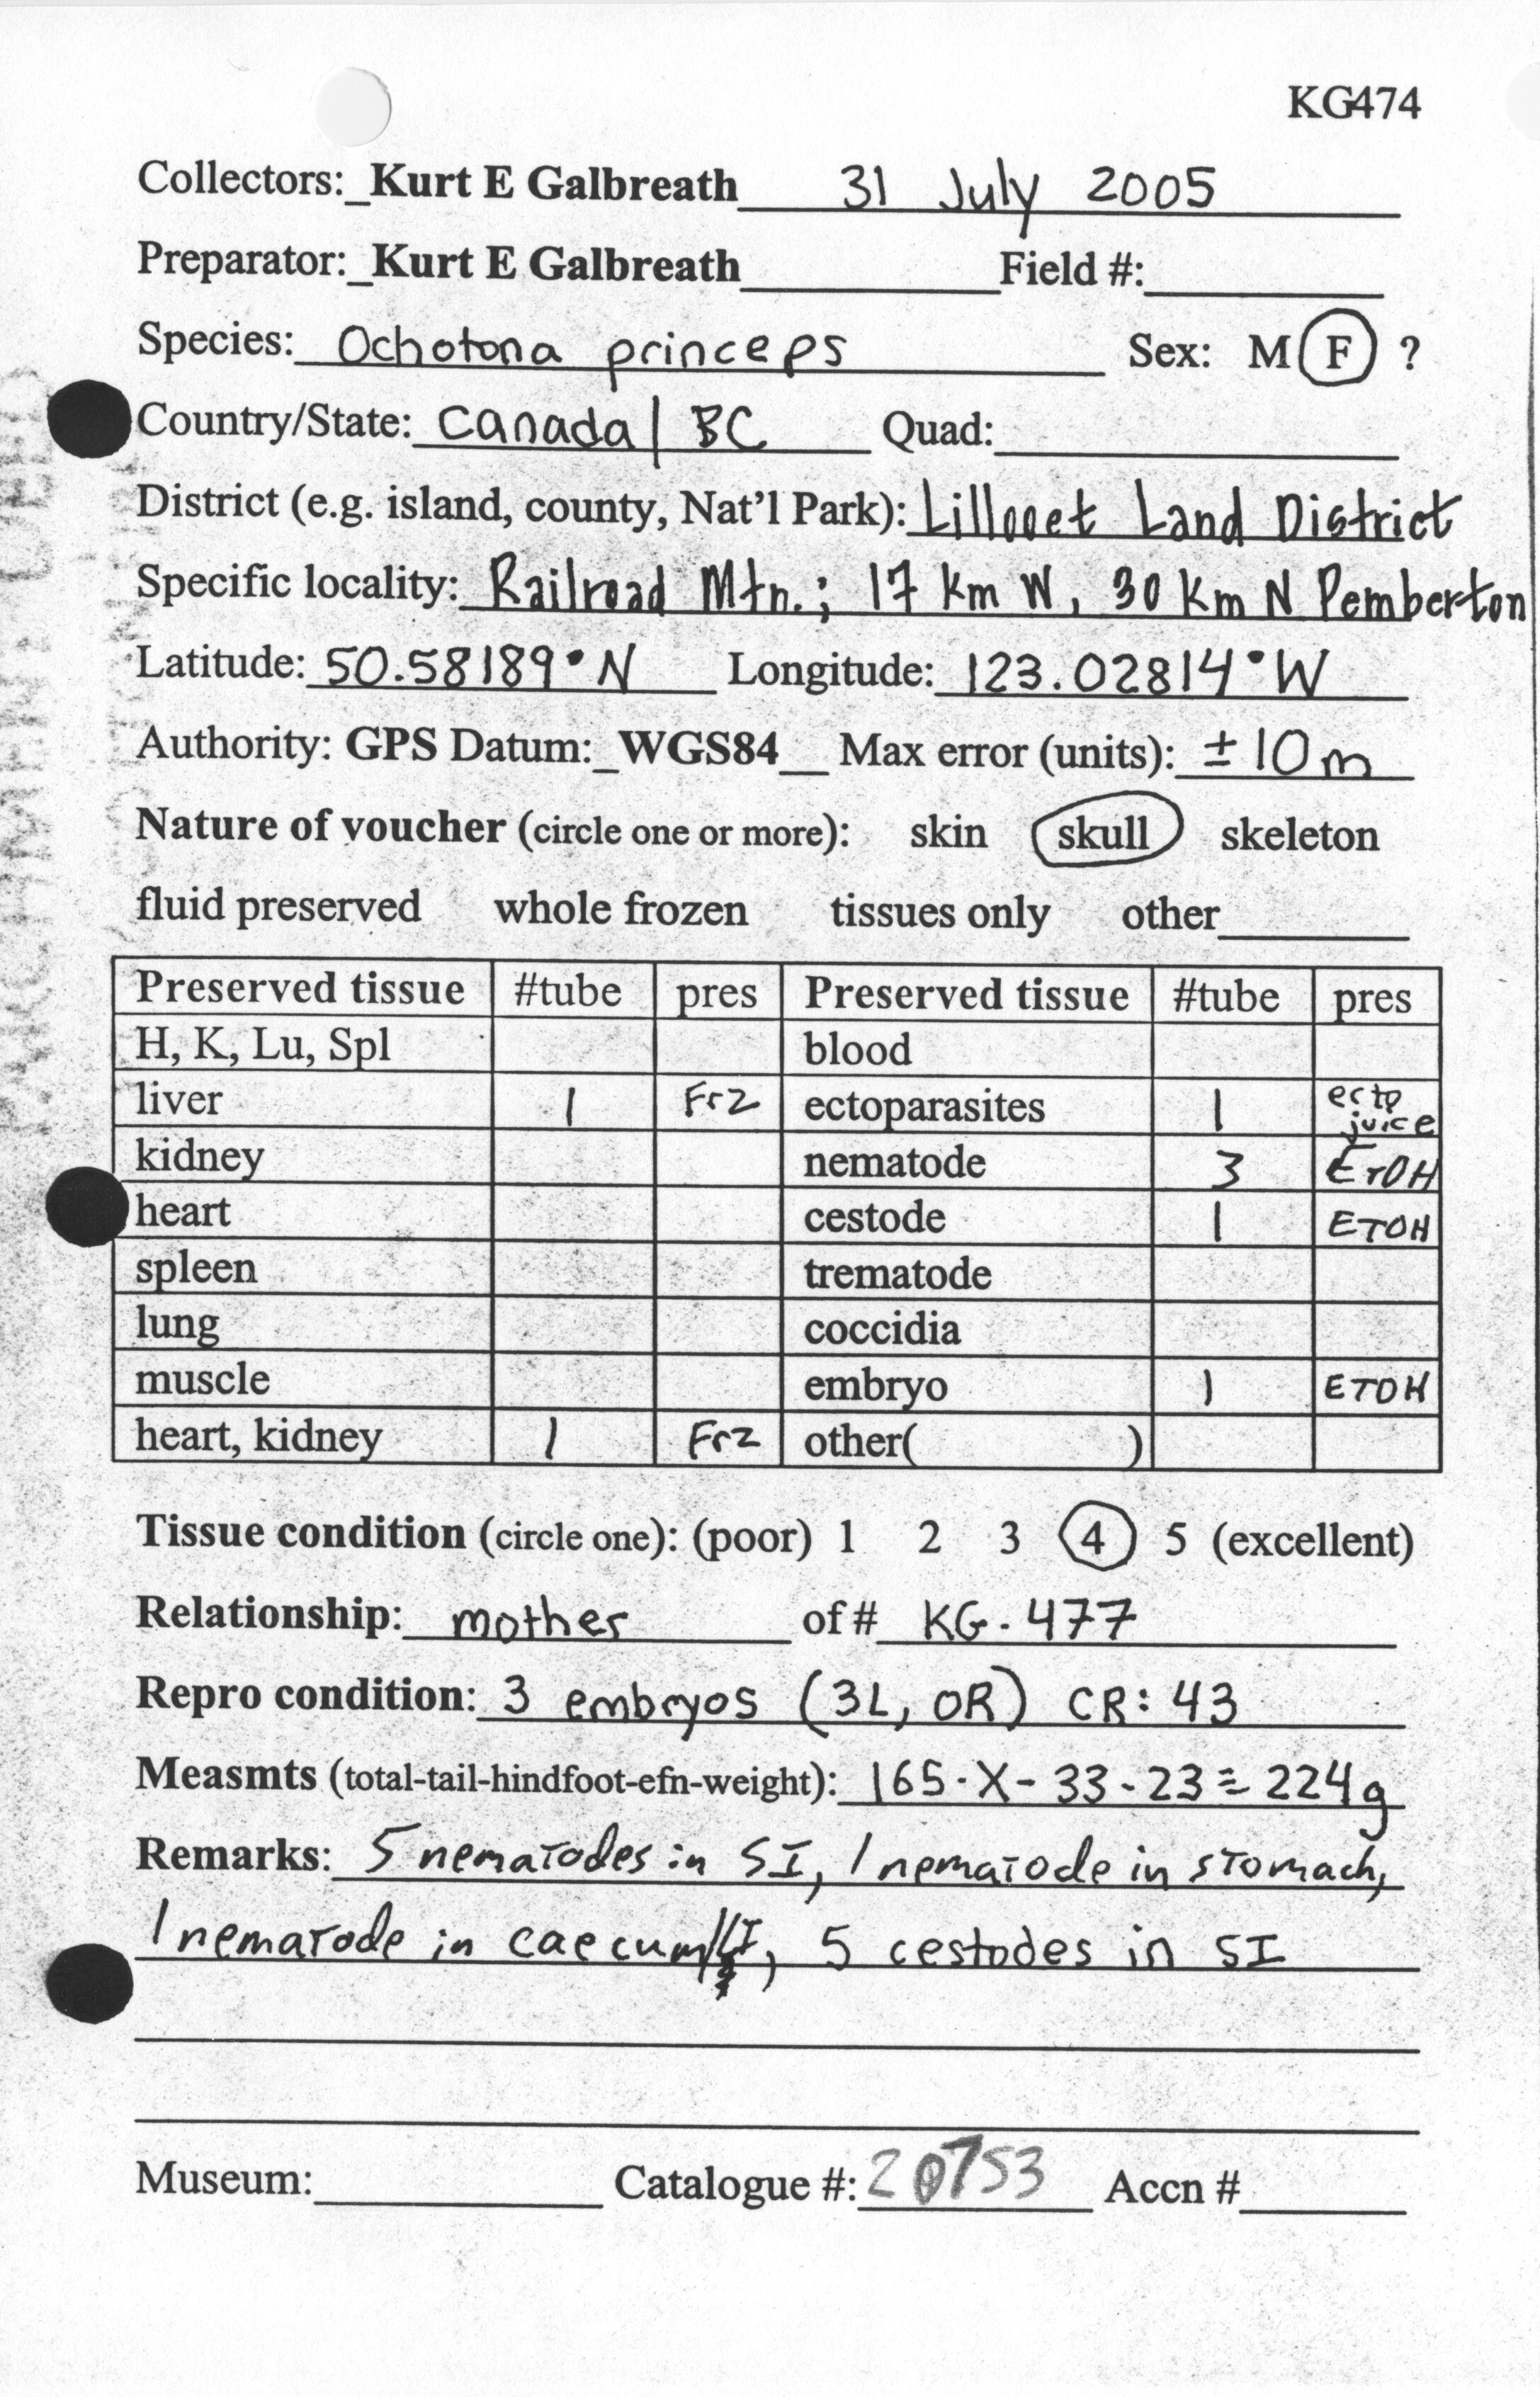 KG474
Collectors: Kurt E Galbreath 31 July 2005
Preparator: Kurt E Galbreath Field #:
Species: Ochotona princeps Sex: M F ?
Country/State: Canada | BC Quad:
District (e.g. island, county, Nat'l Park): Lillooet Land District
Specific locality: Railroad Mtn.; 17 km W, 30 km N Pemberton
Latitude: 50.58189° N Longitude: 123.02814° W
Authority: GPS Datum: WGS84 Max error (units): ± 10 m
Nature of voucher (circle one or more): skin skull skeleton
fluid preserved whole frozen tissues only other
Preserved tissue #tube pres Preserved tissue #tube pres
H, K, Lu, Spl blood
liver 1 Frz ectoparasites 1 ecto juice
kidney nematode 3 ETOH
heart cestode 1 ETOH
spleen trematode
lung coccidia
muscle embryo 1 ETOH
heart, kidney 1 Frz other( )
Tissue condition (circle one): (poor) 1 2 3 4 5 (excellent)
Relationship: mother of # KG-477
Repro condition: 3 embryos (3L, 0R) CR: 43
Measmts (total-tail-hindfoot-efn-weight): 165-X-33-23≡224g
Remarks: 5 nematodes in SI, 1 nematode in stomach,
1 nematode in caecum/LI, 5 cestodes in SI
Museum: Catalogue #: 20753 Accn #